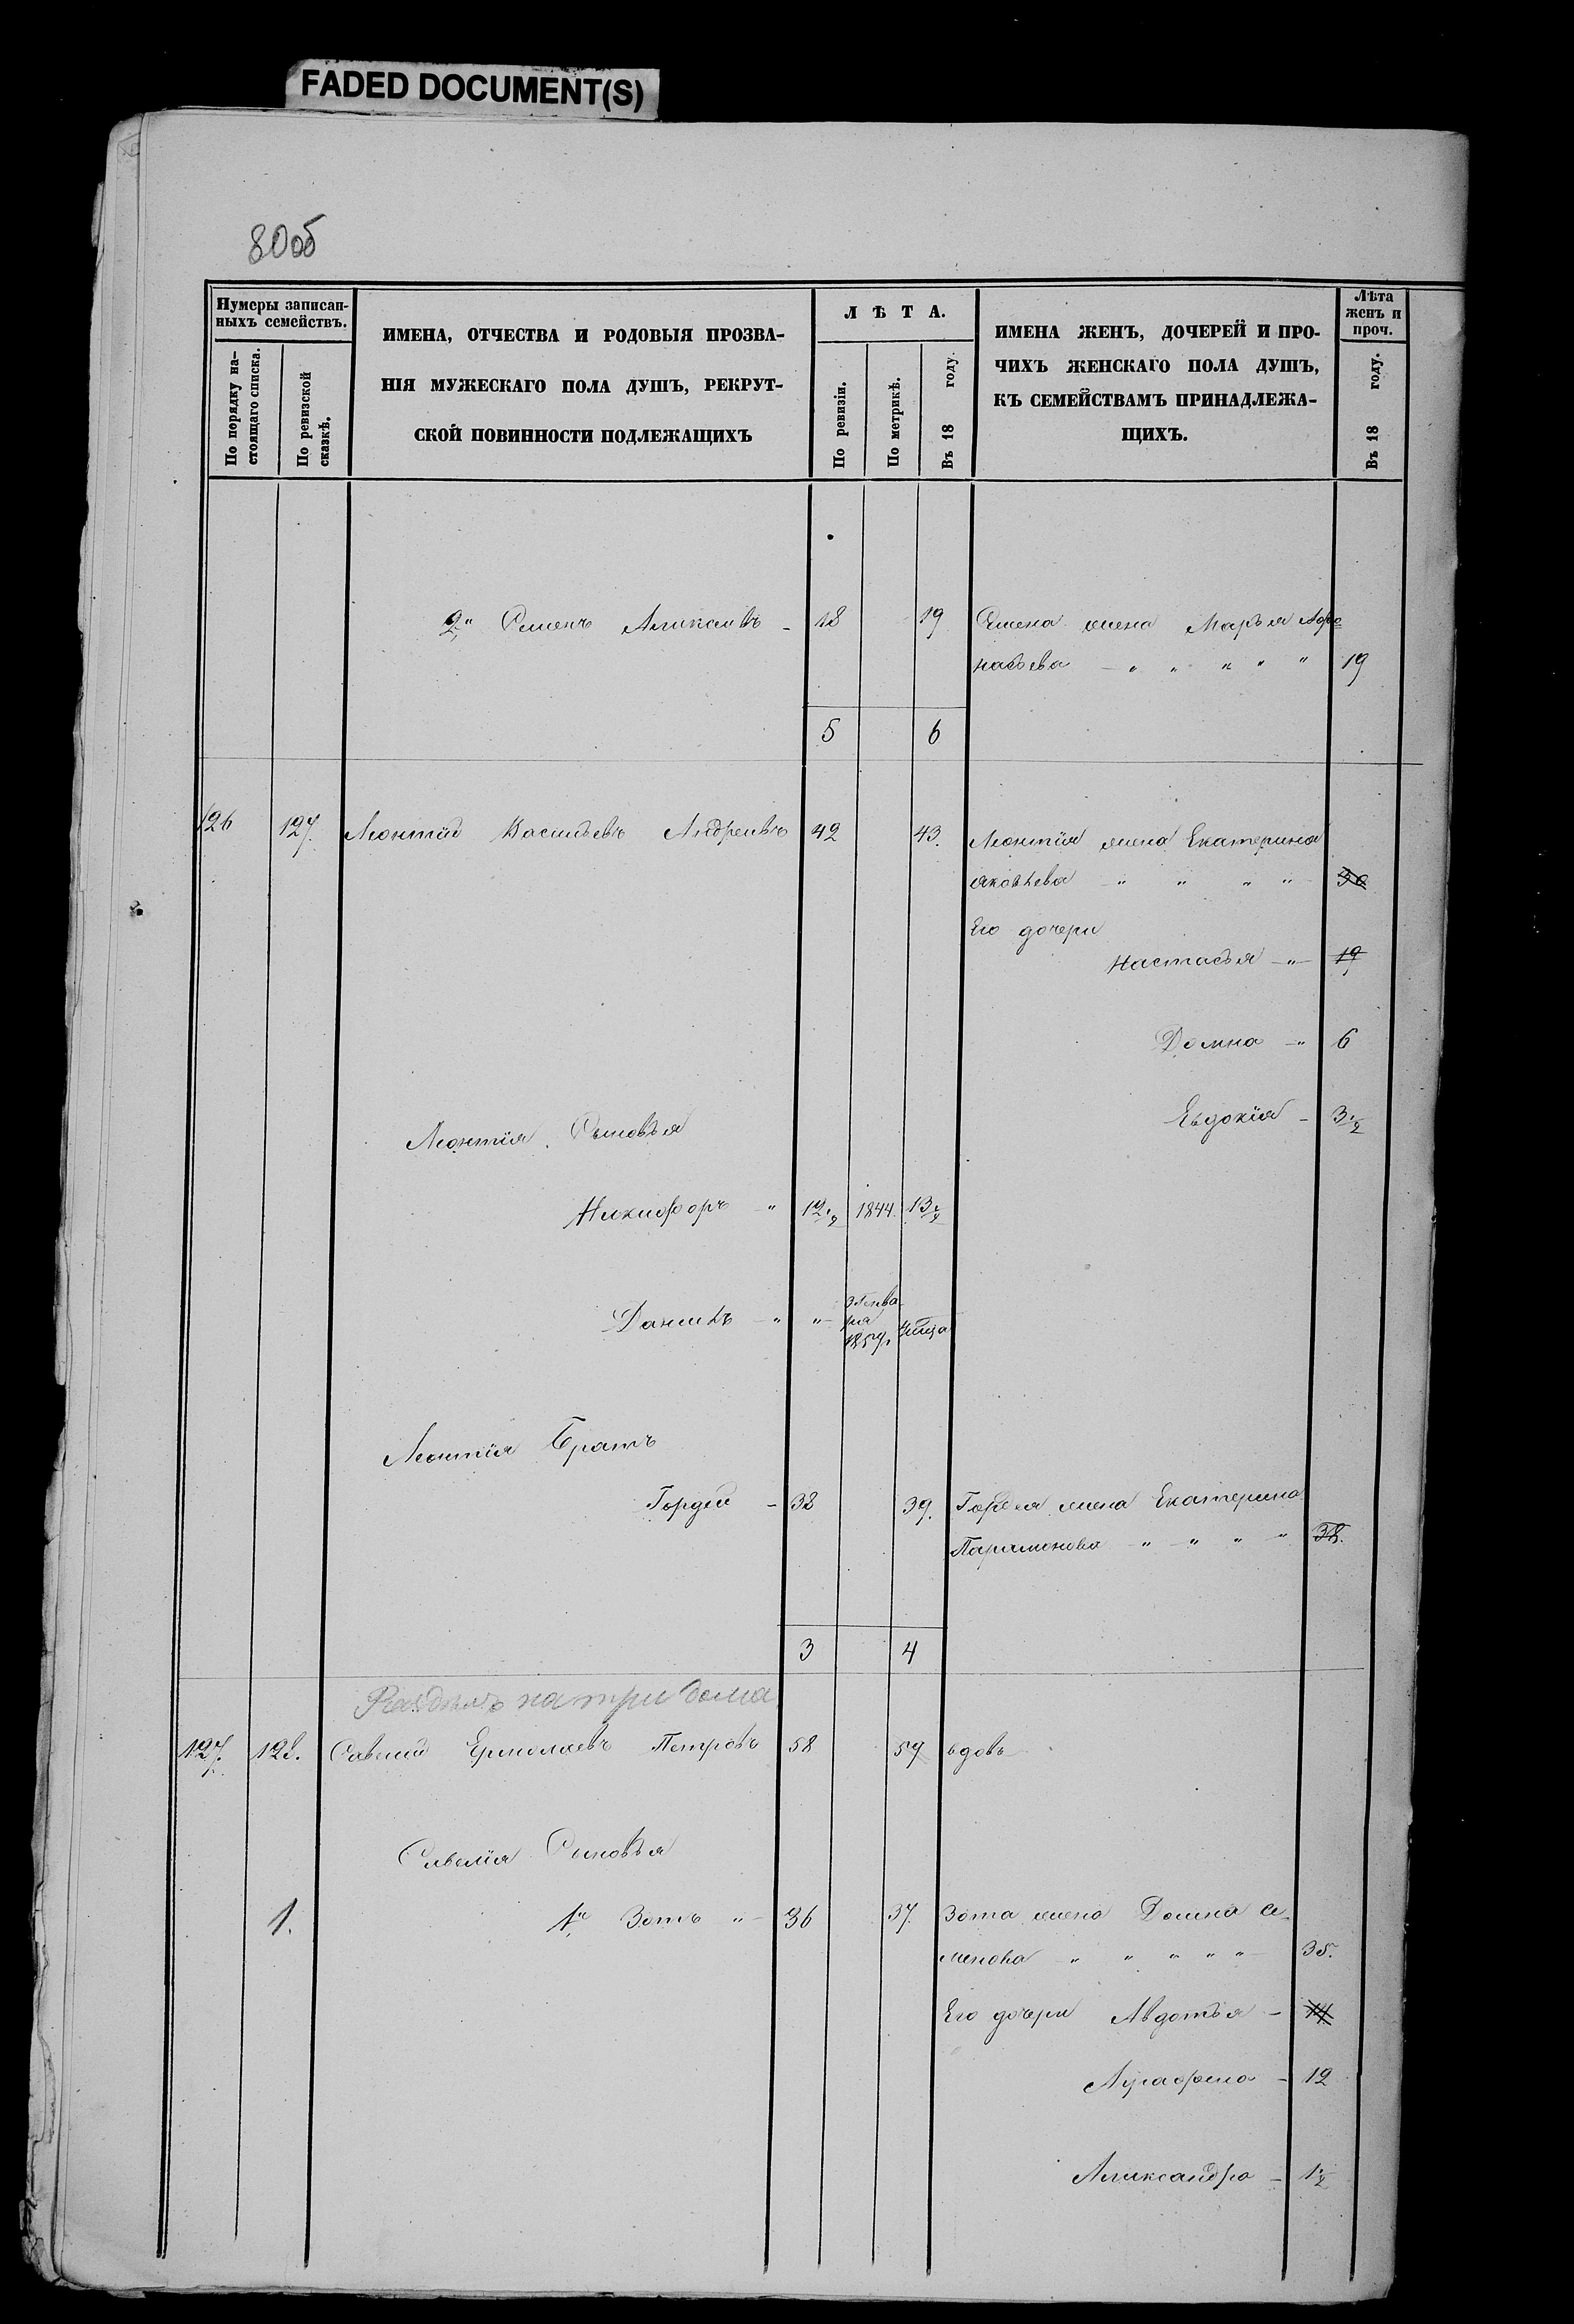 FADED DOCUMENT(S)
80об
Нумеры записан-
ныхъ семействъ.
По порядку на-
стоящаго списка.
По ревизской
сказкѣ.
ИМЕНА, ОТЧЕСТВА И РОДОВЫЯ ПРОЗВА-
НІЯ МУЖЕСКАГО ПОЛА ДУШЪ, РЕКРУТ-
СКОЙ ПОВИННОСТИ ПОДЛЕЖАЩИХЪ
ЛѢТА.
По ревизіи.
По метрикѣ.
Въ 18 году.
ИМЕНА ЖЕНЪ, ДОЧЕРЕЙ И ПРО-
ЧИХЪ ЖЕНСКАГО ПОЛА ДУШЪ,
КЪ СЕМЕЙСТВАМЪ ПРИНАДЛЕЖА-
ЩИХЪ.
Лѣта
женъ и
проч.
Въ 18 году.
2й Семенъ Алексеевъ - 18 19 Семена жена Марья Афо
насьева - " " " " " 19
5 6
126 127. Леонтій Васильевъ Андреевъ 42 43. Леонтія жена Екатерина
яковлева - " " " " 30
Его дочери
Настасья - " - 19
Домна - " 6
Евдокія - 3 1/2
Леонтія Сыновья
Никифоръ " 12 1/2 1844. 13 1/2
Данилъ - " " - Генва-
ря
1857г.
Леонтія Братъ
Гордей - 38 39. Гордея жена Екатерина
Парамонова - " - " " - " 38.
3 4
Раздѣлъ на три дома
127. 128. Савелій Ермолаевъ Петровъ 58 59 вдовъ
Савелія Сыновья
1. 1й Зотъ " - 36 37. Зота жена Домна Се-
менова " " " " " - 35.
Его дочери Авдотья - 14
Аграфена - 12
Александра - 1 1/2